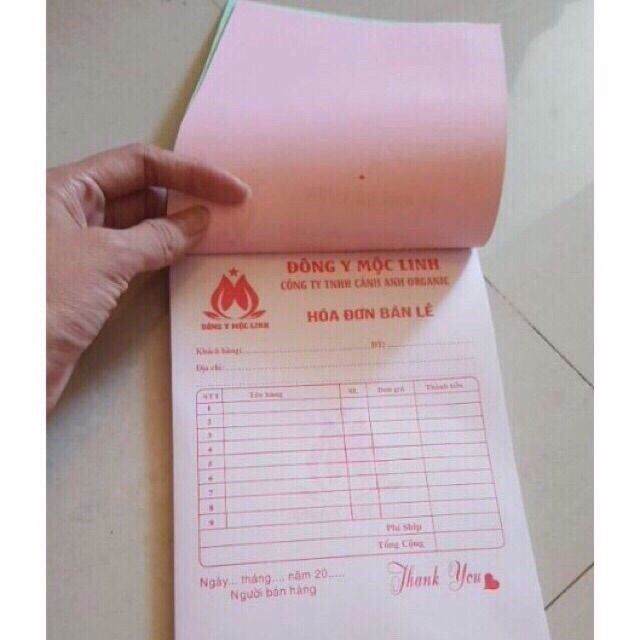 ĐÔNG Y MỘC LINH
CÔNG TY TNHH CẢNH ANH ORGANIC
ĐÔNG Y MỘC LINH
HÓA ĐƠN BÁN LẺ
Khách hàng:........................ ĐT:........................
Địa chỉ:................................................
STT Tên hàng SL Đơn giá Thành tiền
1
2
3
4
5
6
7
8
9
Phí Ship
Tổng Cộng
Ngày... tháng.... năm 20.....
Người bán hàng
Thank You